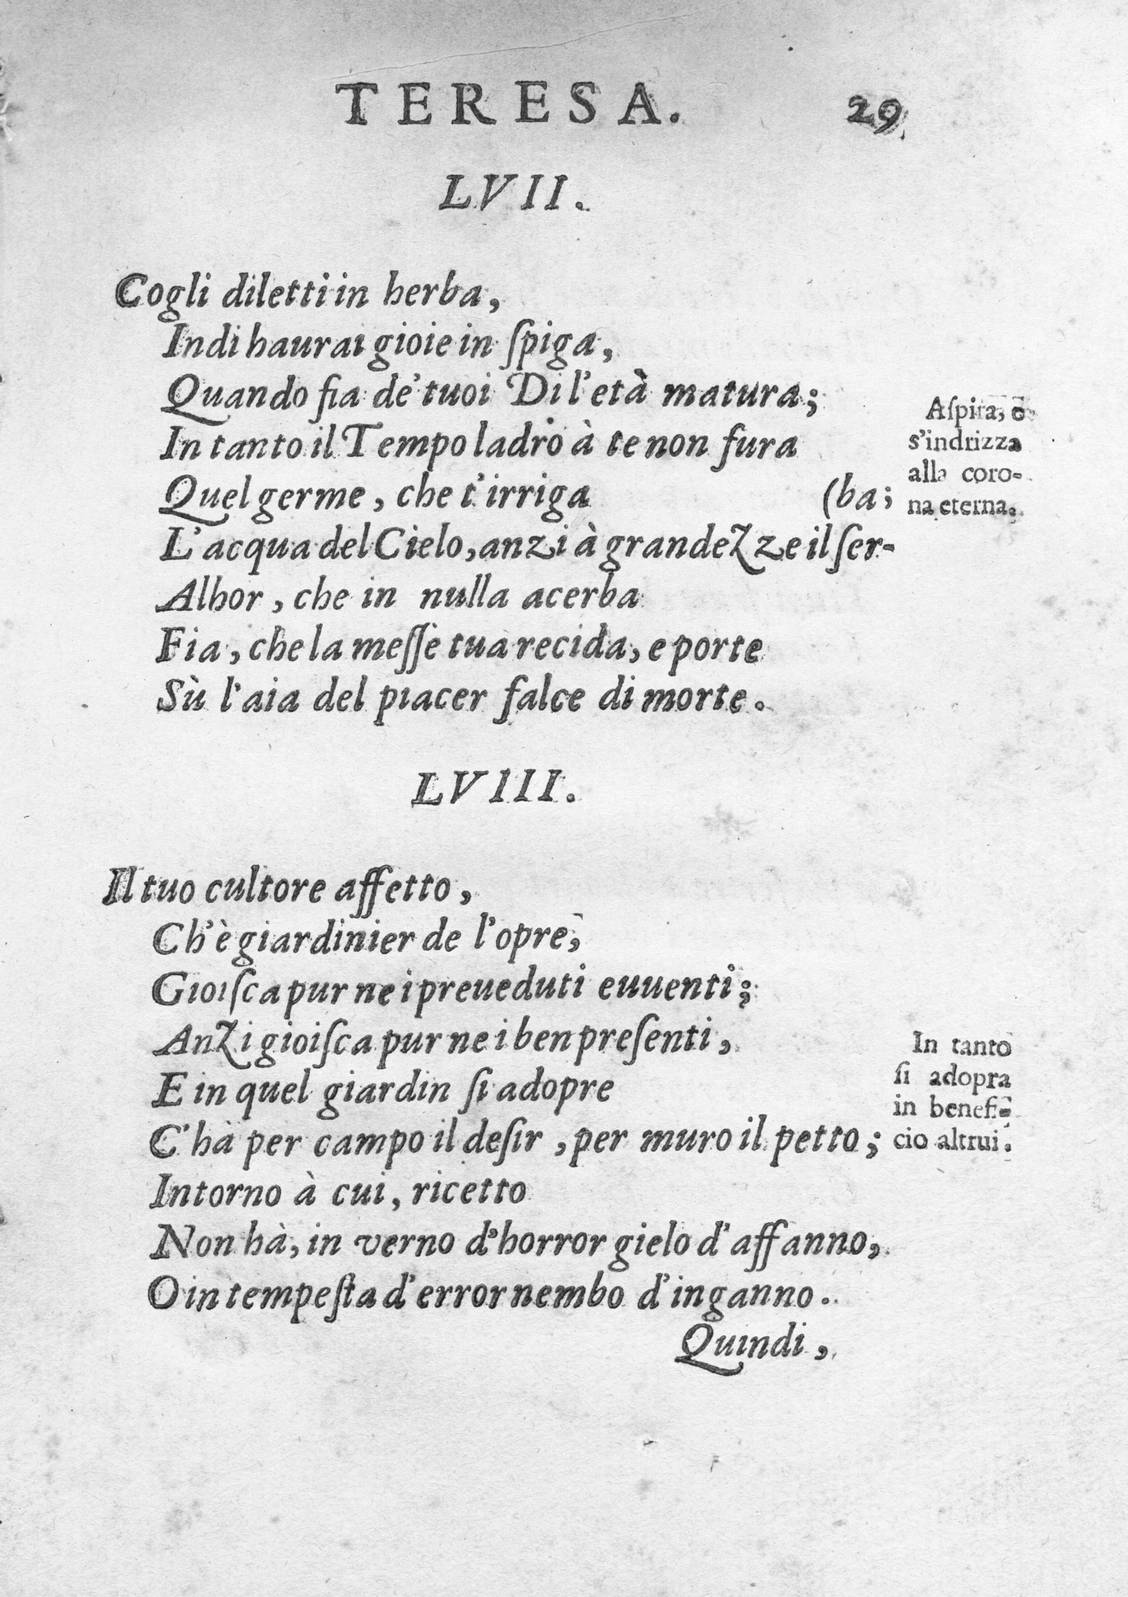 TERESA. 29
LVII.
Cogli diletti in herba,
Indi haurai gioie in ſpiga,
Quando fia de' tuoi Dì l'età matura;
In tanto il Tempo ladro à te non fura
Quel germe, che t'irriga (ba;
L'acqua del Cielo, anzi à grandezze il ſer-
Alhor, che in nulla acerba
Fia, che la meſſe tua recida, e porte
Sù l'aia del piacer falce di morte.
Aſpira, ò
s'indrizza
alla coro-
na eterna.
LVIII.
Il tuo cultore affetto,
Ch'è giardinier de l'opre,
Gioiſca pur ne i preueduti euuenti;
Anzi gioiſca pur ne i ben preſenti,
E in quel giardin ſi adopre
C'hà per campo il deſir, per muro il petto;
Intorno à cui, ricetto
Non hà, in verno d'horror gielo d'affanno,
O in tempeſta d'error nembo d'inganno.
In tanto
ſi adopra
in benefi-
cio altrui.
Quindi,